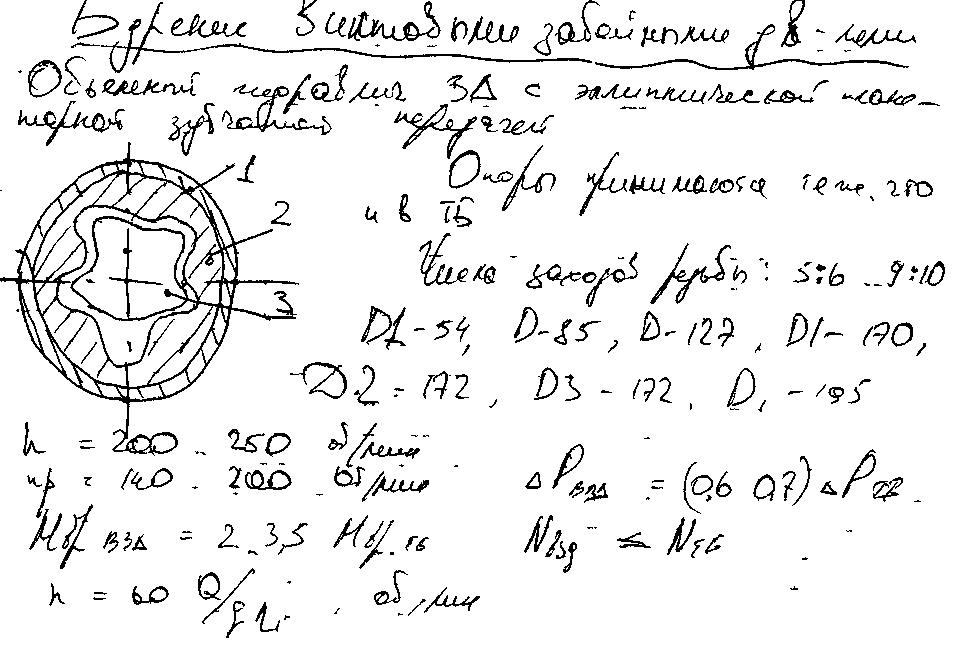 Бурение Винтовыми забойными дв-лями
Объемный гидравлич ЗД с эллиптической плане-
тарной зубчатой передачей
1
Опоры принимаются
2
и в ТБ
Число заходов резьбы: 5:6 .. 9:10
3
Д1-54, Д-85, Д-127, Д1-170,
Д2=172, Д3-172, Д1-195
n = 200 .. 250 об/мин
np = 140 .. 200 об/мин
ΔPВЗД = (0,6 0,7) ΔP
Mвр ВЗД = 2..3,5 Mвр.тб
Nвзд ≤ Nтб
n = 60 Q/q , об/мин